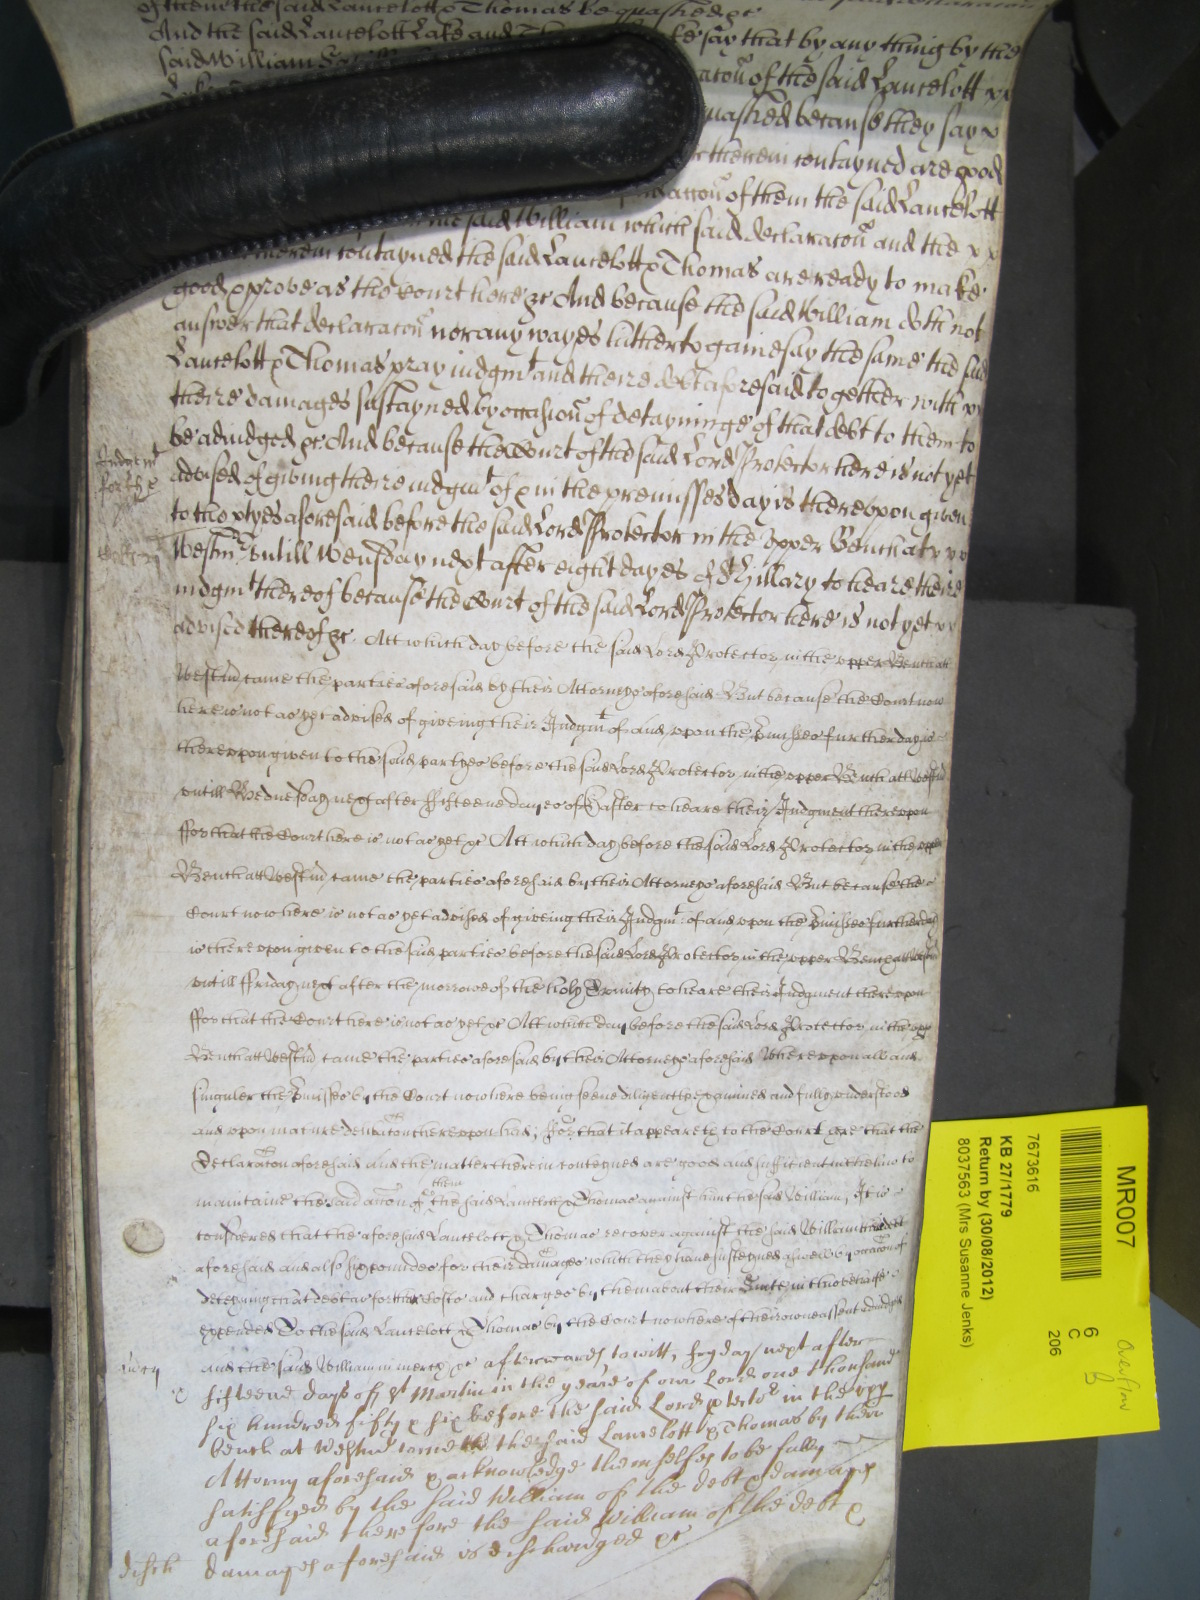 of them the said Lancelott & Thomas be quashed &c
And the said Lancelott Lake and say that by any thing by the
said William
of the said Lancelott xx
quashed because they say x
therein contayned are good
of them the said Lancelott
the said William which said declaracon and the x x
therein contayned the said Lancelott & Thomas are ready to make
good & prove as the Court here &c And because the said William doth not
answer that declaracon nor any wayes hitherto gainesay the same the said
Lancelott & Thomas pray iudgmt and theire debt aforesaid together with
theire damages sustayned by occasion of detayninge of that debt to them to
be adiudged &c And because the Court of the said Lord Protector here is not yet
advised of giving theire iudgmt of & in the premisses day is thereupon given
to the ptyes aforesaid before the said Lord Protector in the Upper Bench at
Westmr untill Wensday next after eight dayes of St Hillary to heare theire
iudgmt thereof because the Court of the said Lord Protector here is not yet
advised thereof &c. Att which day before the said Lord Protector in the upper Bench att
Westmr came the parties aforesaid by their Attorneys aforesaid But because the Court now
here is not as yet advised of giveing their Judgmt of and upon the Premisses further day is
thereupon given to the said partyes before the said Lord Protector in the upper Bench att Westmr
untill Wednesday next after Fifteene dayes of Easter to heare their Judgment thereupon
ffor that the Court here is not as yet &c Att which day before the said Lord Protector in the upper
Bench att Westmr came the parties aforesaid by their Attorneys aforesaid But because the
Court now here is not as yet advised of giveing their Judgmt of and upon the Premisses further day
is thereupon given to the said parties before the said Lord Protector in the upper Bench att Westmr
untill ffriday next after the morrowe of the holy Trinity to heare their Judgment thereupon
ffor that the Court here is not as yet &c Att which day before the said Lord Protector in the upp
Bench att Westmr came the parties aforesaid by their Attorneys aforesaid Whereupon all and
singuler the Premisses by the Court now here being seene diligently examined and fully understood
and upon mature deliberacon thereupon had, For that it appeareth to the Court here that the
Declaracon aforesaid and the matter therein conteyned are good and sufficient in the law to
maintaine the said accon of them the said Lancelott & Thomas against him the said William, It is
considered that the aforesaid Lancelott & Thomas recover against the said William their debt
aforesaid and also six poundes for their damages which they have susteyned aswell by occacon of
deteyning that debt as for their Costs and charges by them about their Suite in this behalfe
expended To the said Lancelott & Thomas by the Court now here of their owne assent adiudged
mercy and the said William in mercy &c afterwards to witt, fryday next after
fifteene days of St Martin in the yeare of our Lord one thousand
six hundred fifty & six before the said Lord ptector in the upp
bench at Westmr come the said Lancelott & Thomas by their
Attorny aforesaid & acknowledge themselfes to be fully
satisfyed by the said William of the debt & damages
aforesaid therefore the said William of the debt &
disch damages aforesaid is discharged &c
Judgmt
for the
MR007
6
C
206
Overflow
7673616
KB 27/1779
Return by (30/08/2012)
8037563 (Mrs Susanne Jenks)